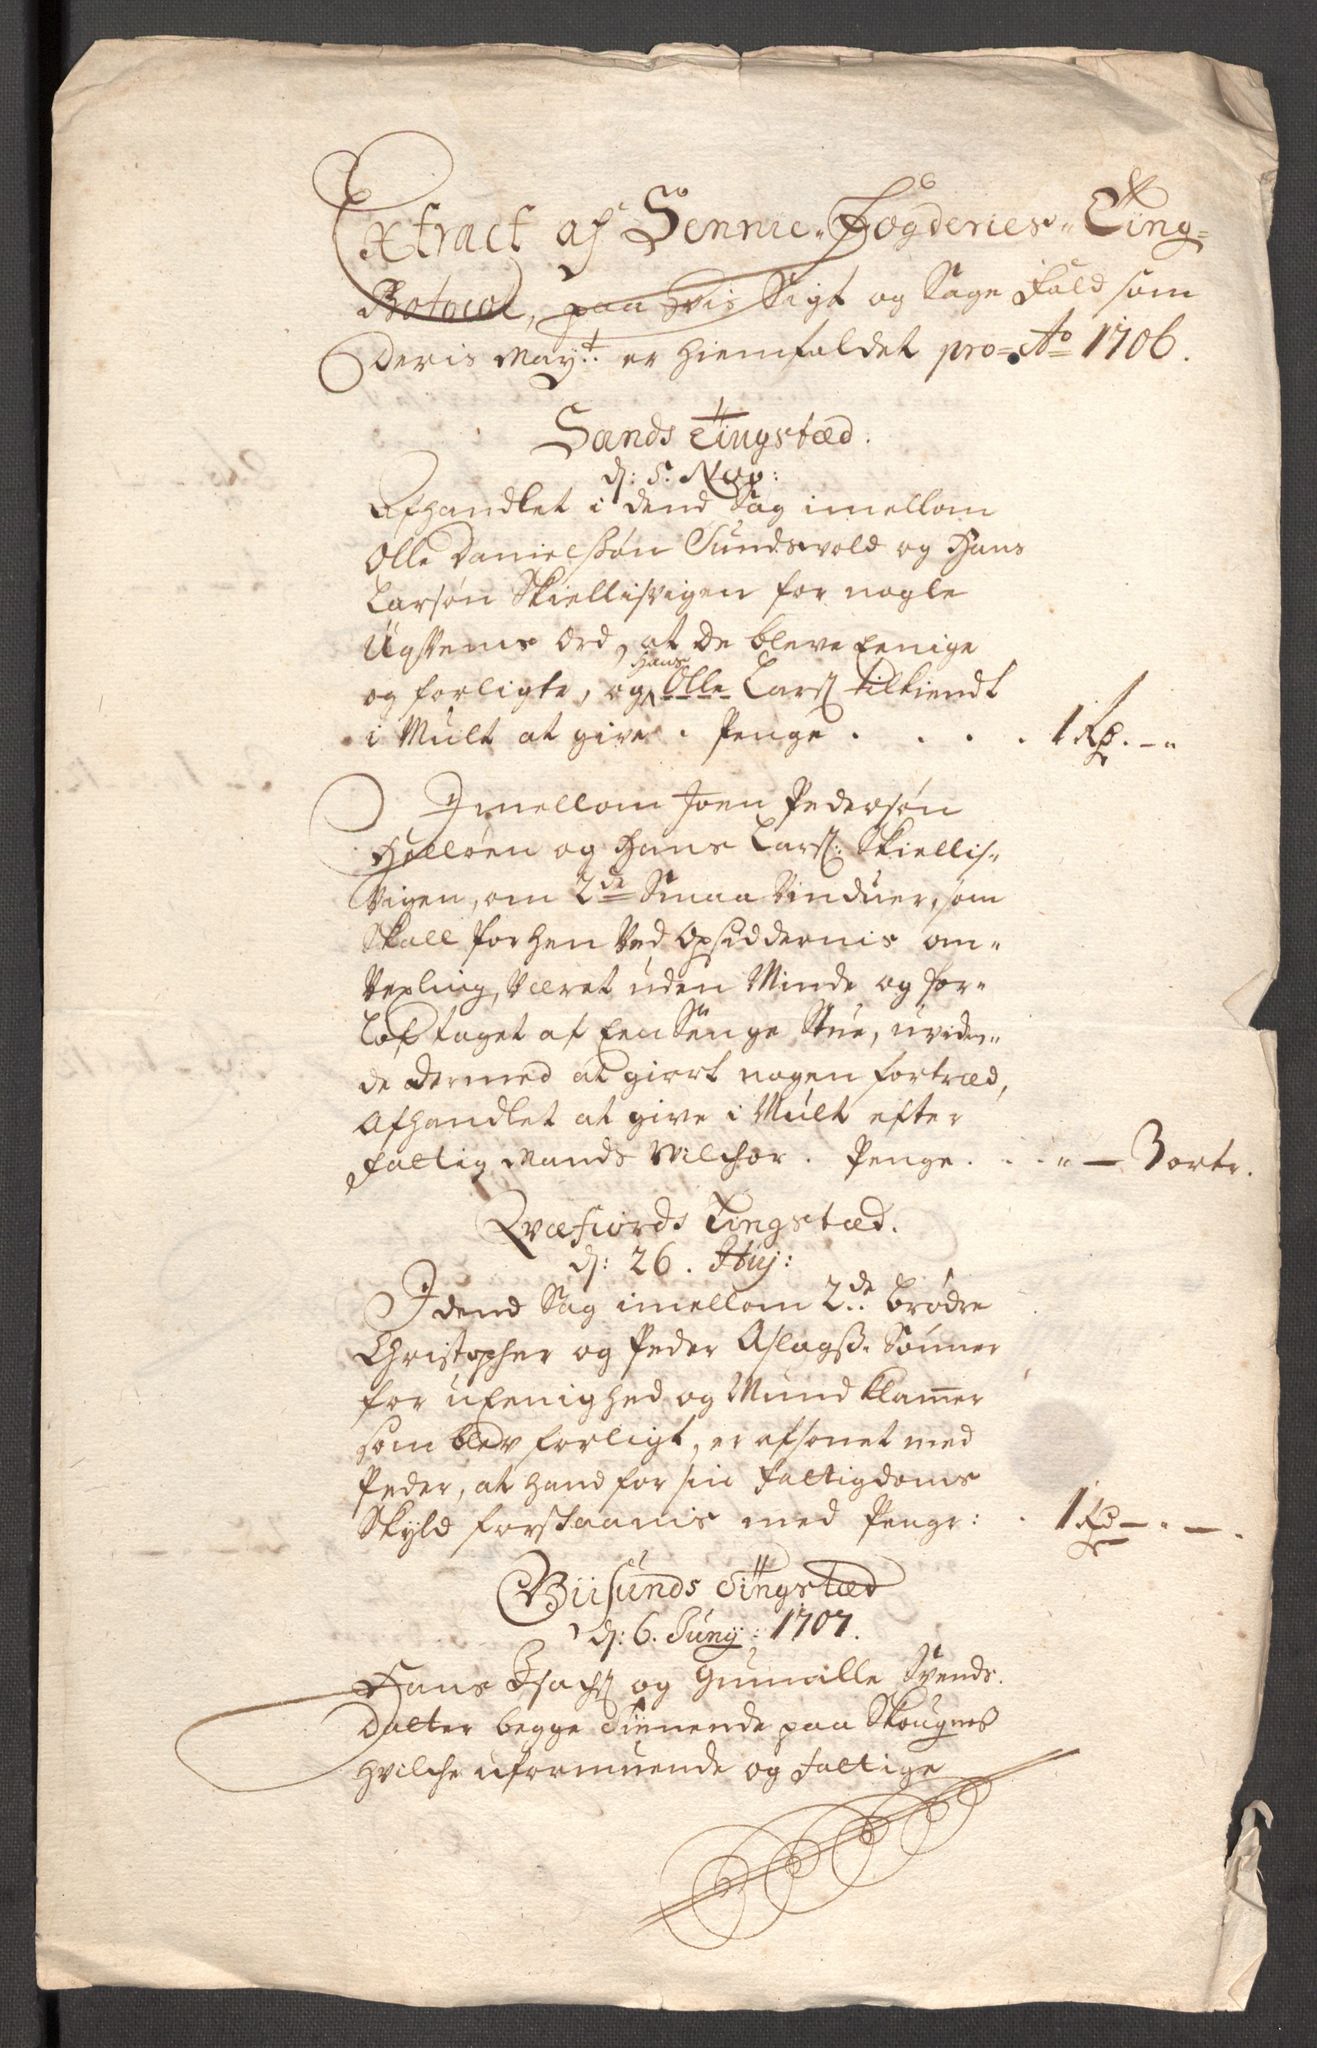 Extract af Sennie-Fogderies-Ting-
Protocol, paa hvis Sigt og Sage Fald som
Deris May:t er hiemfaldet pro Ao 1706.
Sands Tingstæd.
d: 5. Nov:
Afhandlet i dend Sag imellom
Olle Danielsøn Sundsvold og Hans
Larsøn Skiellisvigen for nogle
Uqvems Ord, at de bleve Eenige
og forligte, og Hans Olle Lars: tilkiendt
i Mult at give. Penge . . . . 1 Rd. -"
Imellom Joen Pedersøn
Helløen og Hans Lars: Skiellis-
vigen, om 2de Smaa Vinduer, som
Skall forhen ved Opsiddernis om-
vexling, været uden Minde og for-
lof taget af Een Senge Stue, uviden-
de dermed at giort nogen fortræd,
Afhandlet at give i Mult efter
fattig Mands Vilchor. Penge . . . " - 3 ortr.
Qvæfiords Tingstæd.
d: 26. Huj:
I dend Sag imellom 2de brødre
Christopher og Peder Aslagß. Sønner
for uEenighed og Mund klammer
som blev forligt, er afsonet med
Peder, at hand for sin Fattigdoms
Skyld forstaanis med Penge: . 1 Rd - . -
Giisunds Tingstæd
d: 6. Junij: 1707.
Hans Isachs: og Gunnille Svends.
Datter begge Tienende paa Skougnes
hvilche uformuende og Fattige